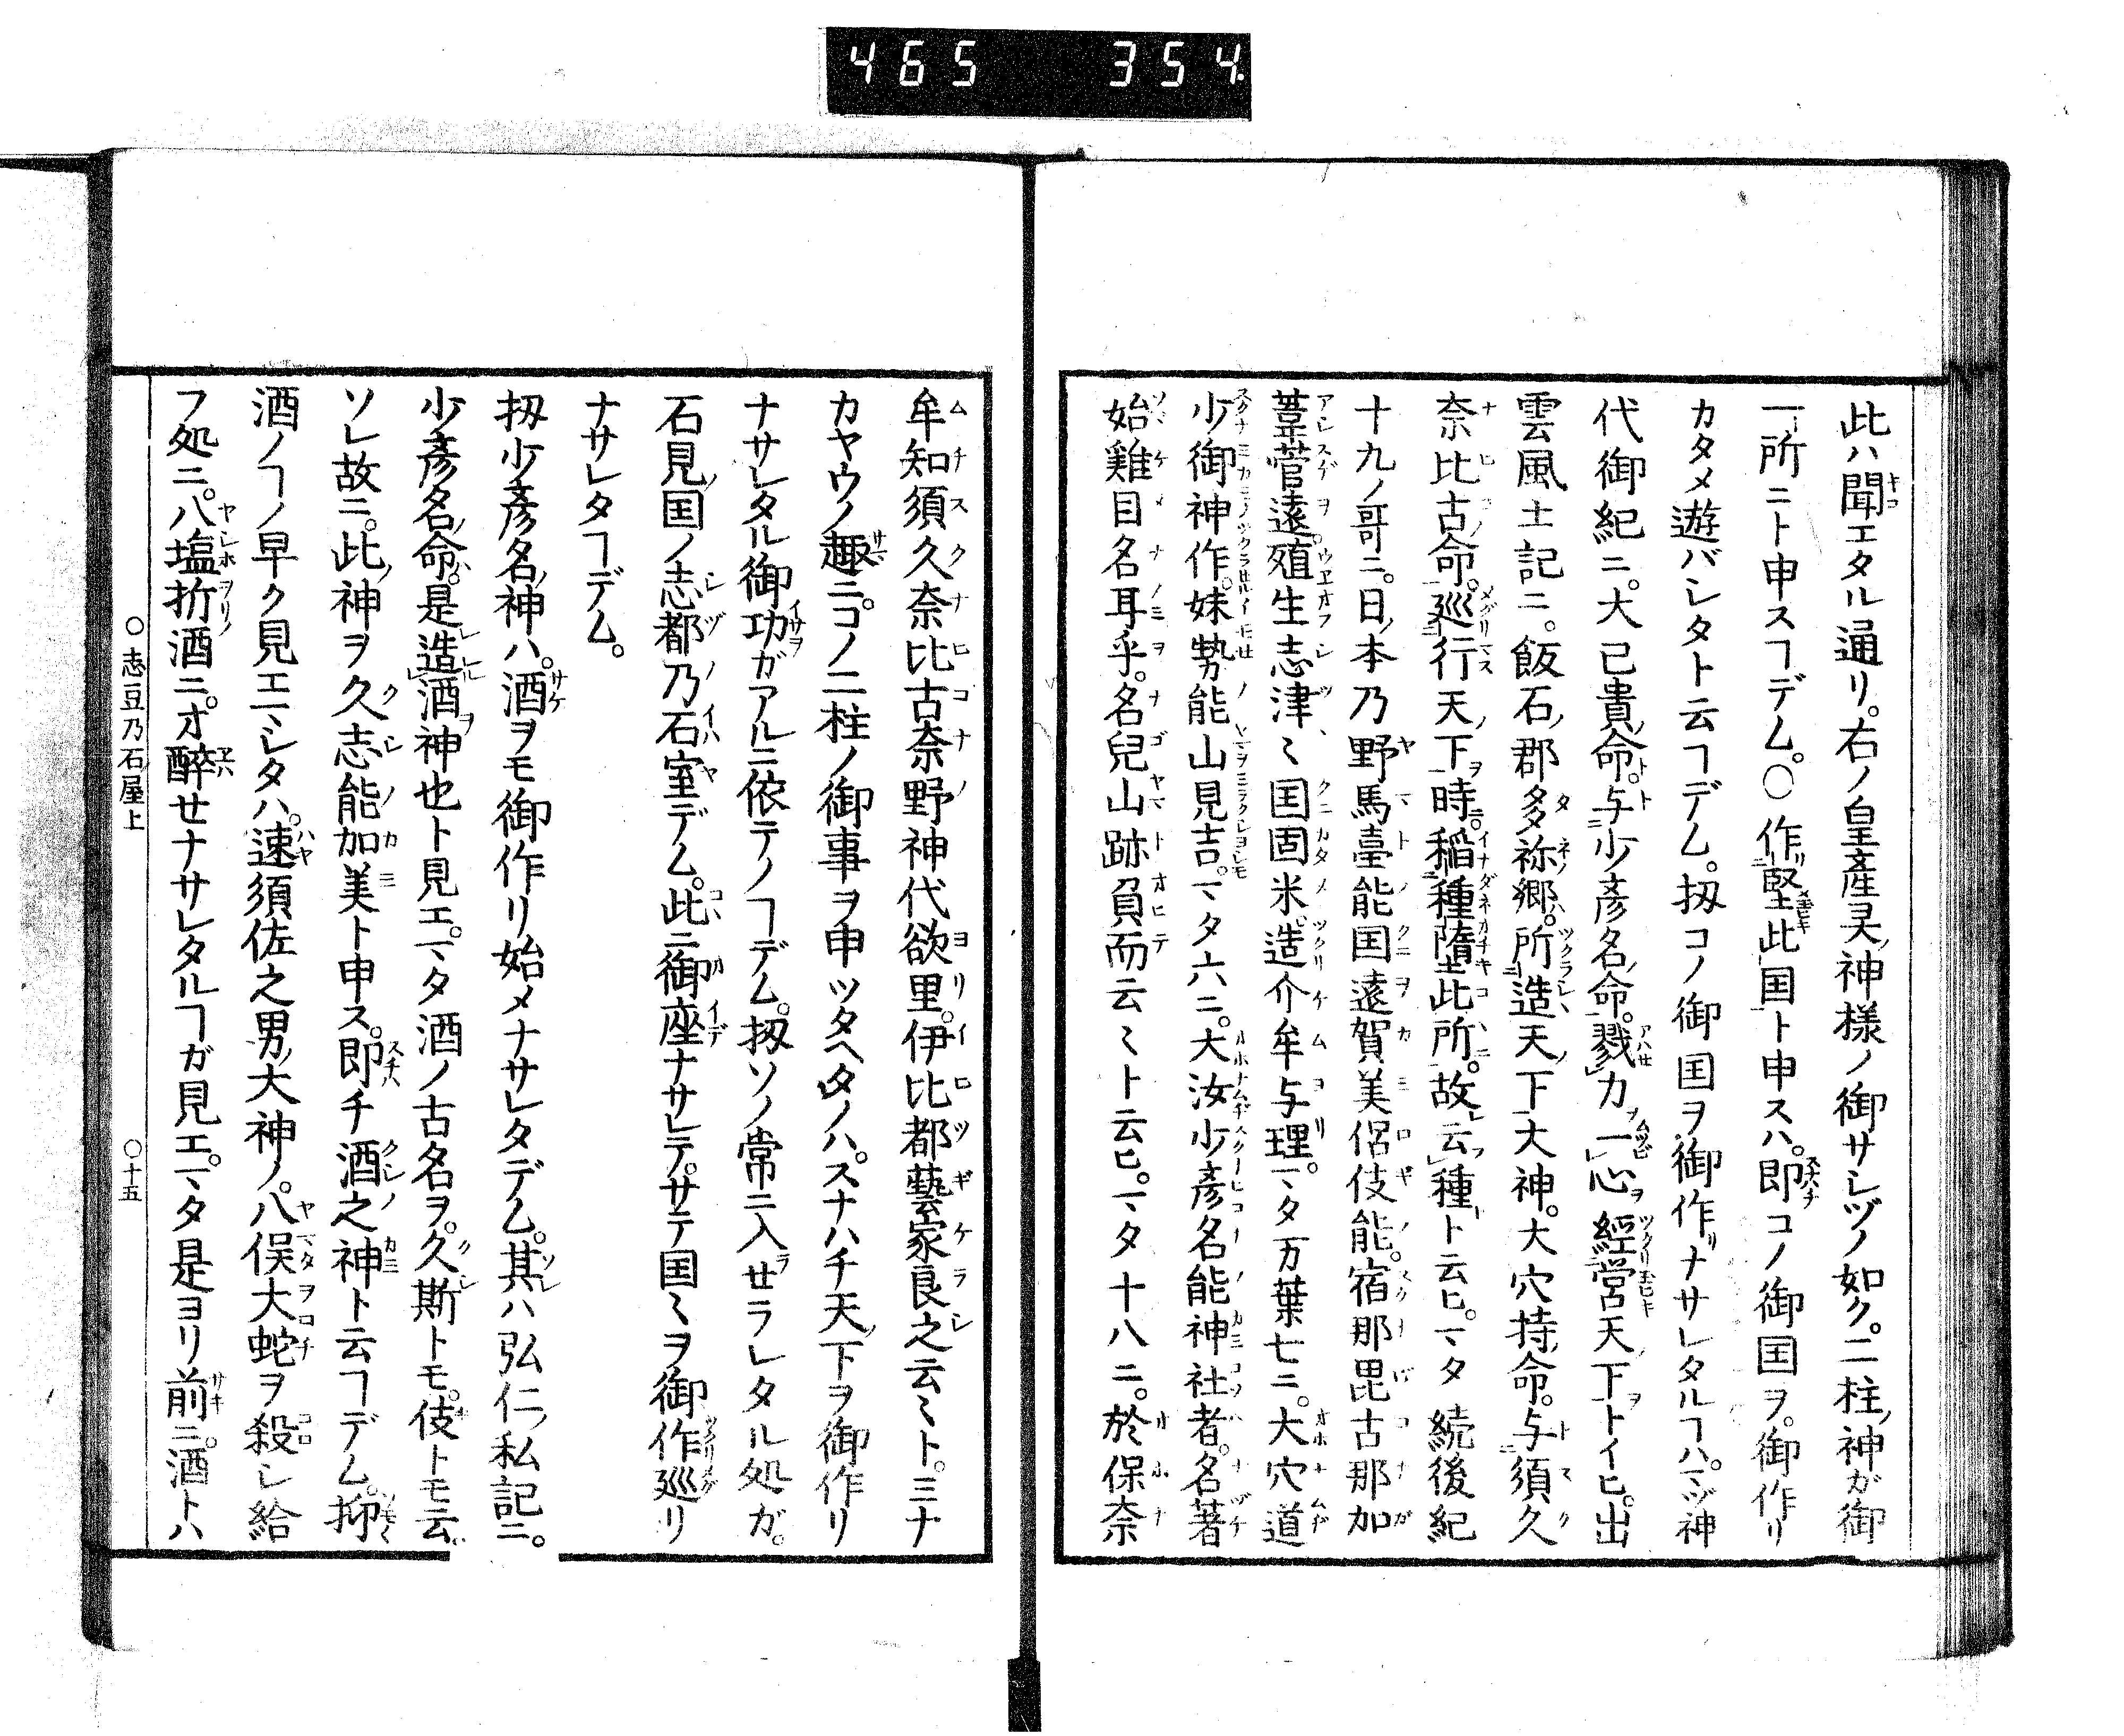 465 354
此ハ聞エタル通リ。右ノ皇産灵ノ神様ノ御サシヅノ如ク。二柱ノ神ガ御
一ツ所ニト申スヿデム。〇作リ堅此国ト申スハ。即コノ御国ヲ。御作リ
カタメ遊バシタト云ヿデム。扨コノ御国ヲ御作リナサレタルヿハ。マヅ神
代御紀ニ。大己貴ノ命。与少彦名ノ命。戮力ヲ一心ヲ経営天ノ下ヲトイヒ。出
雲風土記ニ。飯石ノ郡多祢郷。所造天ノ下大神。大穴持ノ命。与須久
奈比古命。巡行天ノ下時。稲種堕此所。故云種ト云ヒ。マタ続後紀
十九ノ哥ニ。日ノ本乃野馬臺能国遠賀美侶伎能。宿那毘古那加
葦菅遠。殖生志津ヽ国固米。造介牟与理。マタ万葉七ニ。大穴道
少御神作。妹勢能山見吉。マタ六ニ。大汝少彦名能神社者。名著
始雞目名耳乎。名児山跡負而云〻ト云ヒ。マタ十八ニ。於保奈
牟知須久奈比古奈野神代欲里。伊比都藝家良之云〻ト。ミナ
カヤウノ趣ニ。コノ二柱ノ御事ヲ申ツタヘタノハ。スナハチ天ノ下ヲ御作リ
ナサレタル御功ガアルニ依テノヿデム。扨ソノ常ニ入セラレタル処ガ。
石見ノ国ノ志都乃石室デム。此ニ御座ナサレテ。サテ国〻ヲ御作巡リ
ナサレタヿデム。
扨少彦名ノ神ハ。酒ヲモ御作リ始メナサレタデム。其ハ弘仁ノ私記ニ。
少彦名ノ命ハ。是造酒神也ト見エ。マタ酒ノ古名ヲ。久斯トモ。伎トモ云。
ソレ故ニ。此ノ神ヲ久志能加美ト申ス。即チ酒之神ト云ヿデム。抑
酒ノヿノ早ク見エマシタハ。速須佐之男ノ大神ノ。八俣大蛇ヲ殺シ給
フ処ニ。八塩折酒ニ。オ醉セナサレタルヿガ見エ。マタ是ヨリ前ニ。酒トハ
〇志豆乃石屋上 〇十五